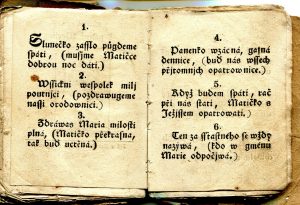 1.
Slunečko zasslo půgdeme
spáti, (musýme Matičce
dobrou noc dáti.)
2.
Wssickni wespolek milj
poutnjci, (pozdrawugeme
nassi orodownici.)
3.
Zdráwas Maria milosti
plná, (Matičko překrásna,
rak bud uctěná.)
4.
Panenko wzácná, gasná
dennice, (bud nás wssech
přjtomných opatrownice.)
5.
Když budem spáti, rač
při nás státi, Matičko s
Ježjssem opatrowati.)
6.
Ten za sstastného se wždy
nazýwá, (kdo w gménu
Marie odpočjwá.)